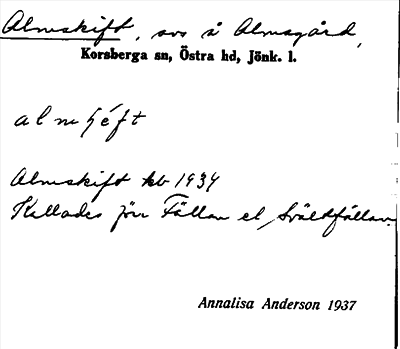 Almskift, avs å Almsgård,
Korsberga sn, Östra hd, Jönk. l.
Almskift kb 1934
Kallades förr Fällan el. Svältfällan.
Annalisa Anderson 1937